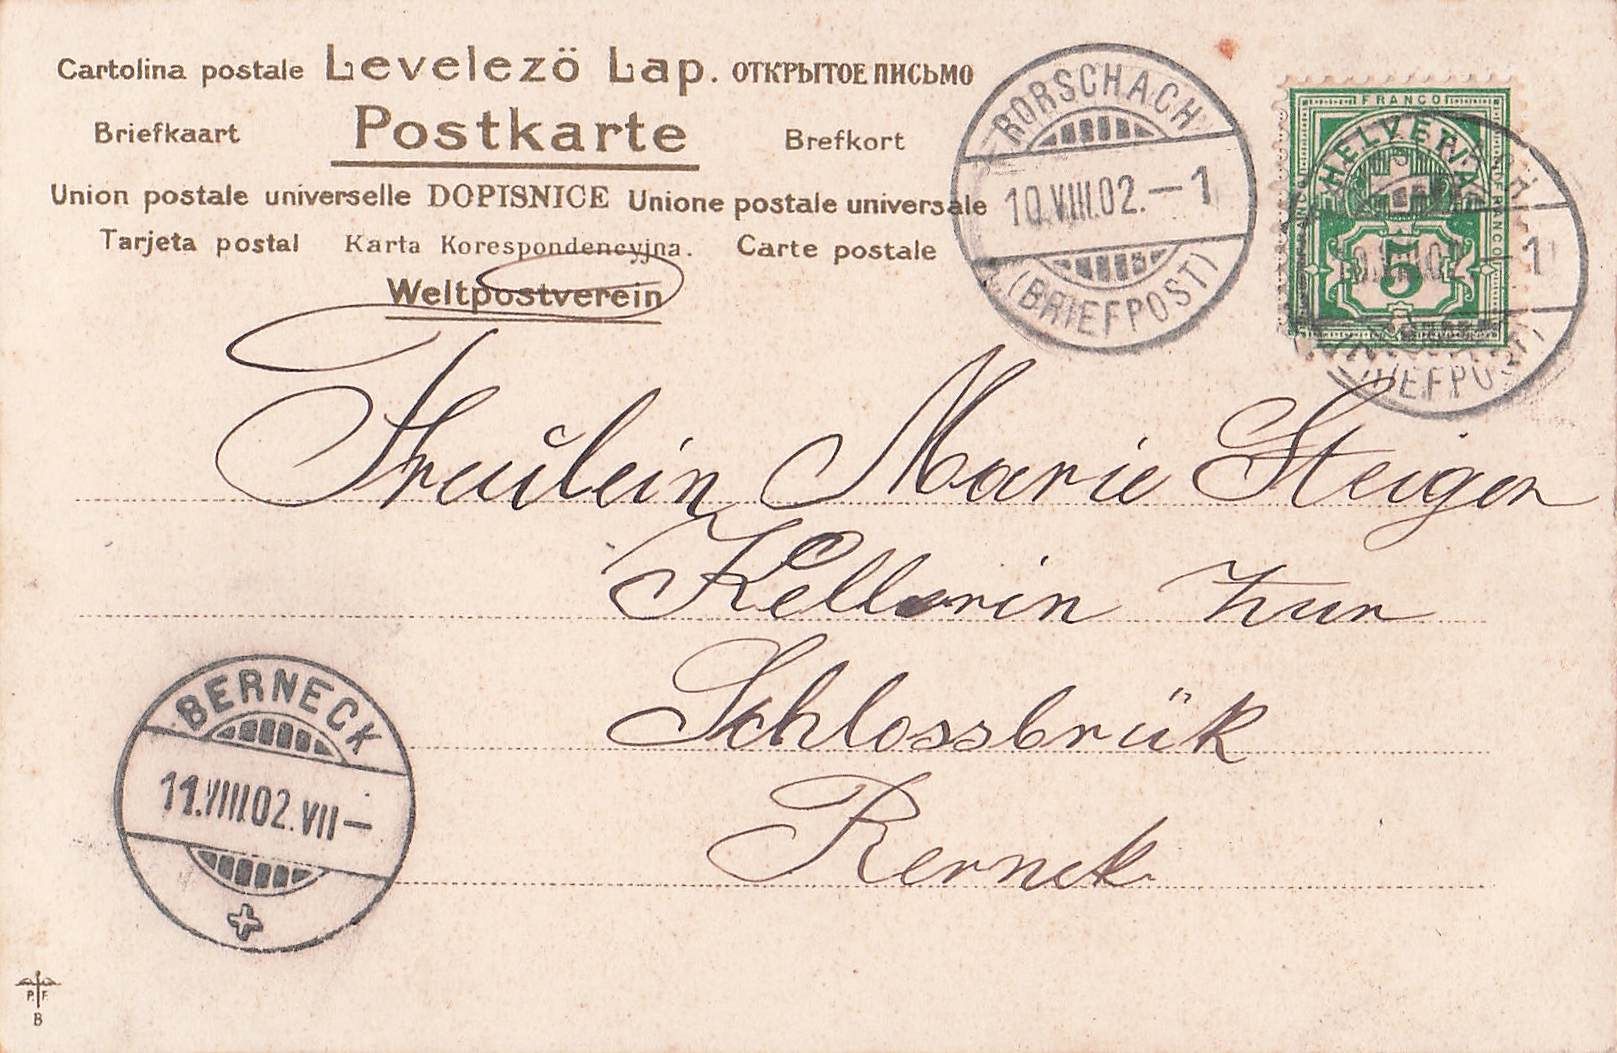 Cartolina postale Levelező Lap. ОТКРЫТОЕ ПИСЬМО
Briefkaart Postkarte Brefkort
Union postale universelle DOPISNICE Unione postale universale
Tarjeta postal Karta Korespondencyjna. Carte postale
Weltpostverein
RORSCHACH
10.VIII.02.–1
(BRIEFPOST)
FRANCO
HELVETIA
5
Fräulein Marie Steiger
Kellerin zur
Schlossbrük
Bernek
BERNECK
11.VIII.02.VII–
P.F.
B